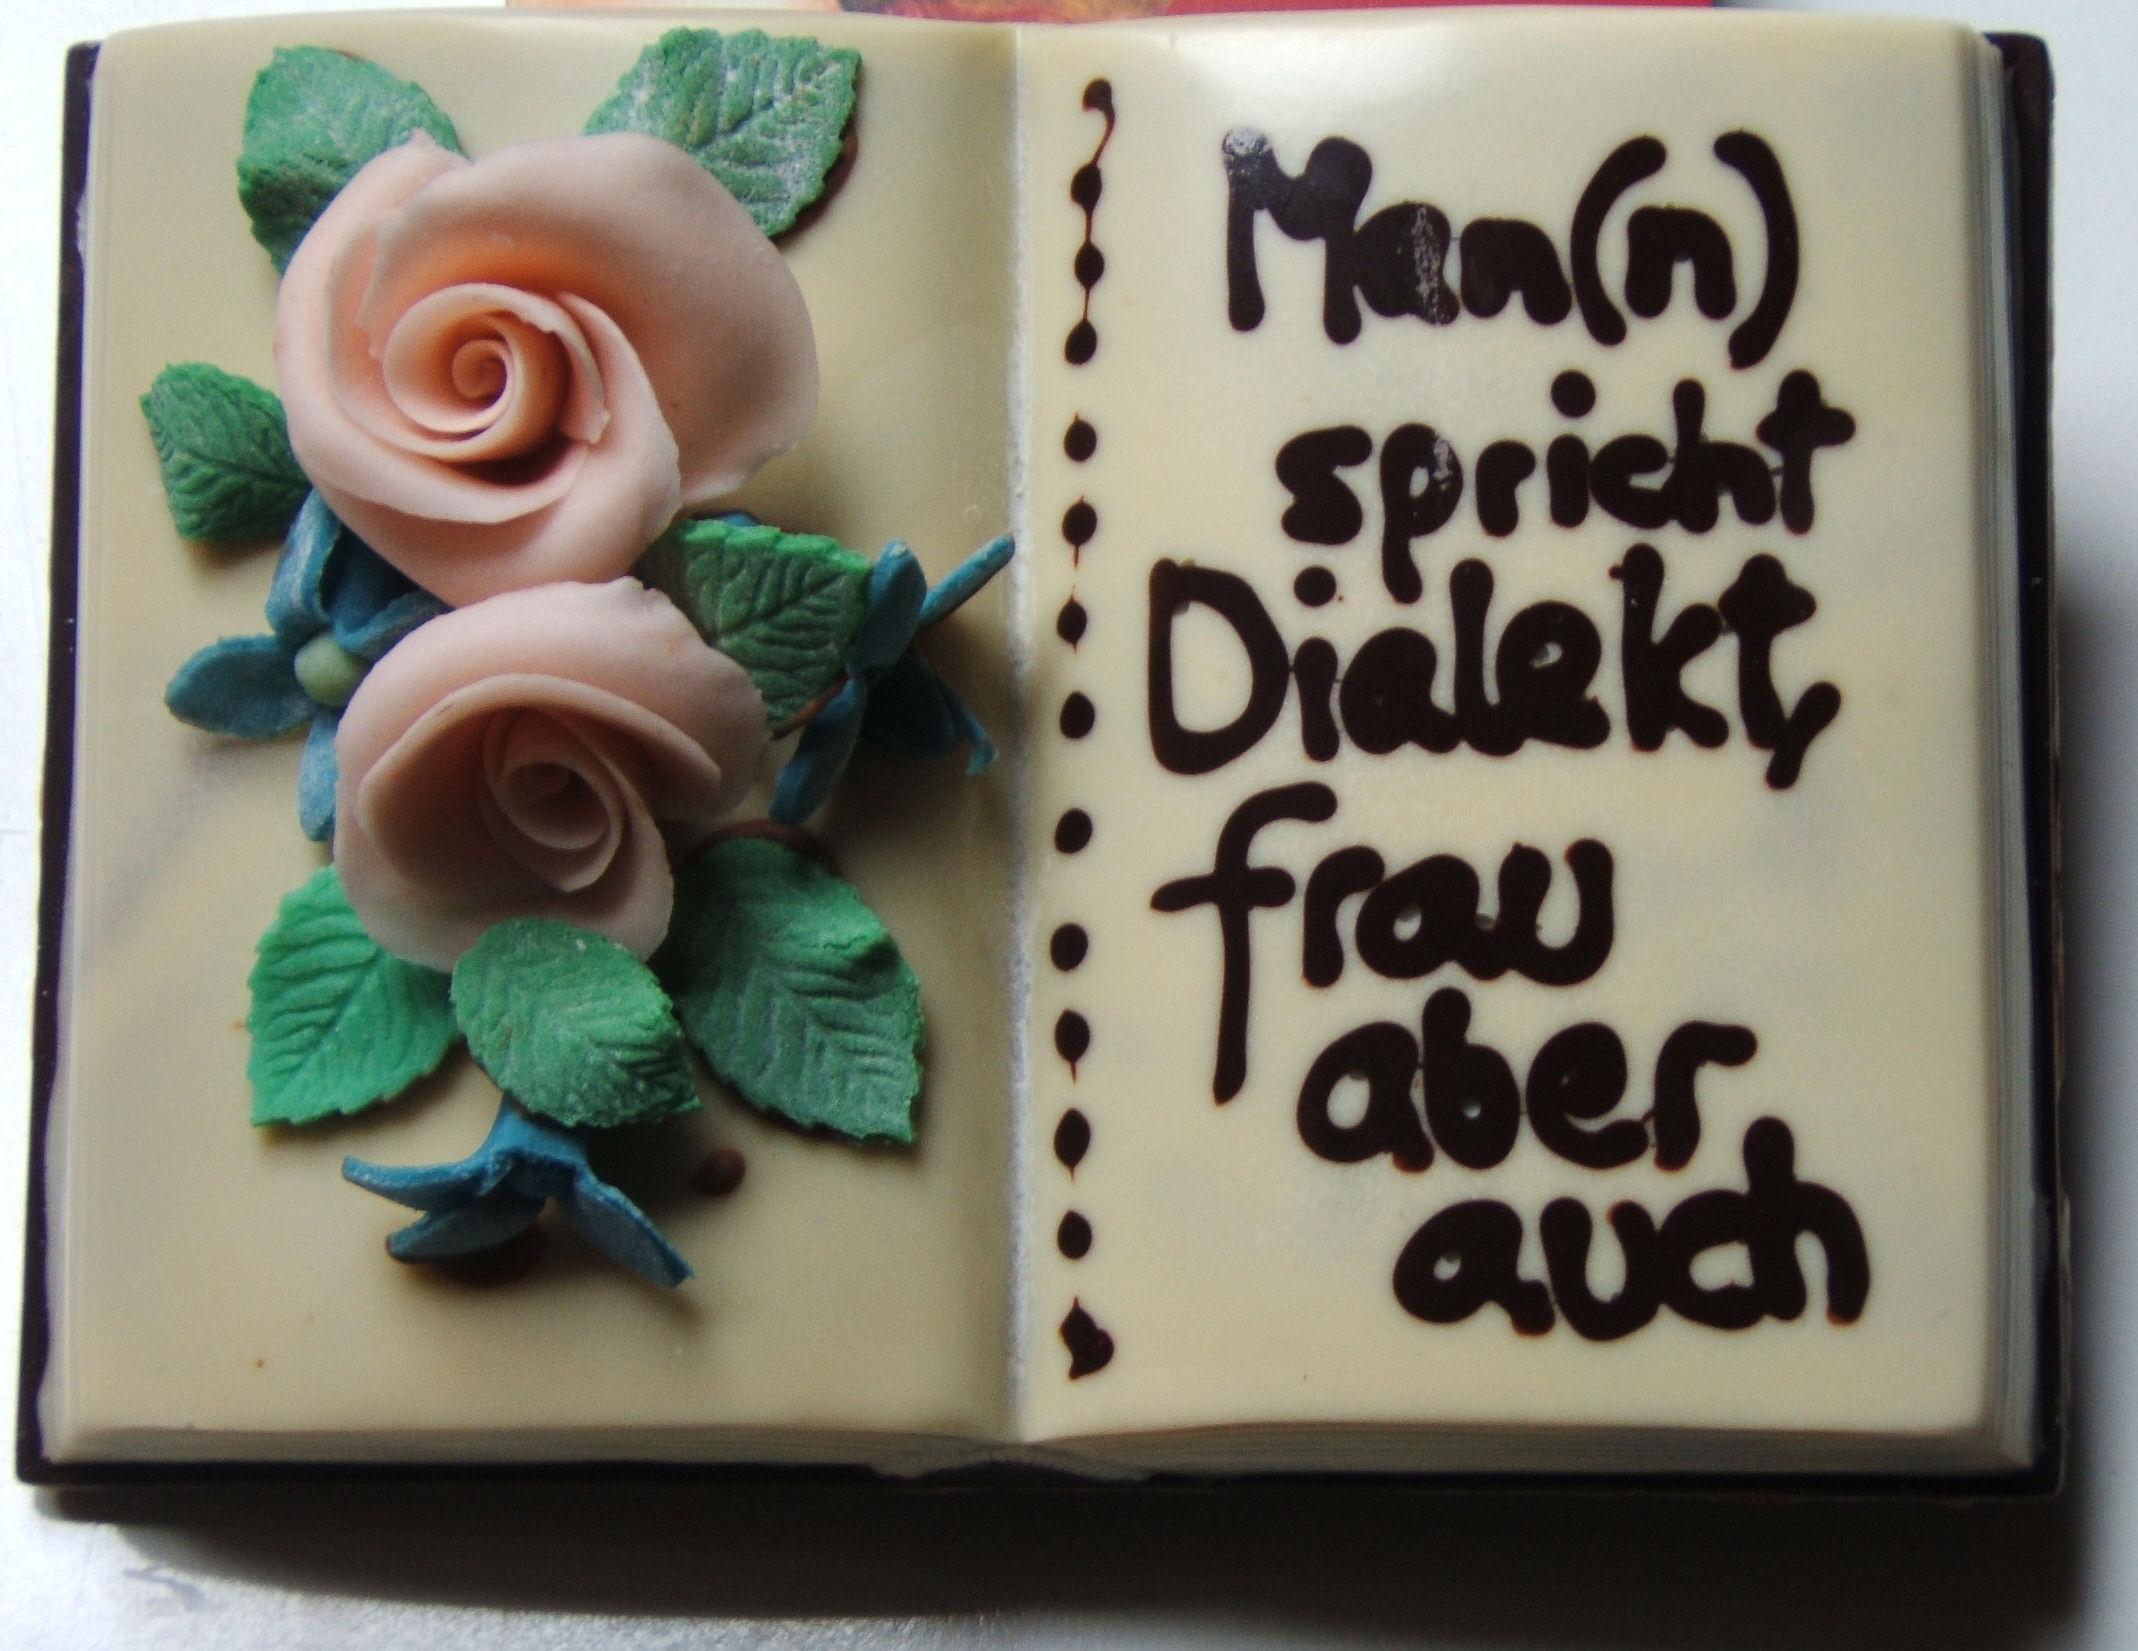 Man(n)
spricht
Dialekt,
frau
aber
auch